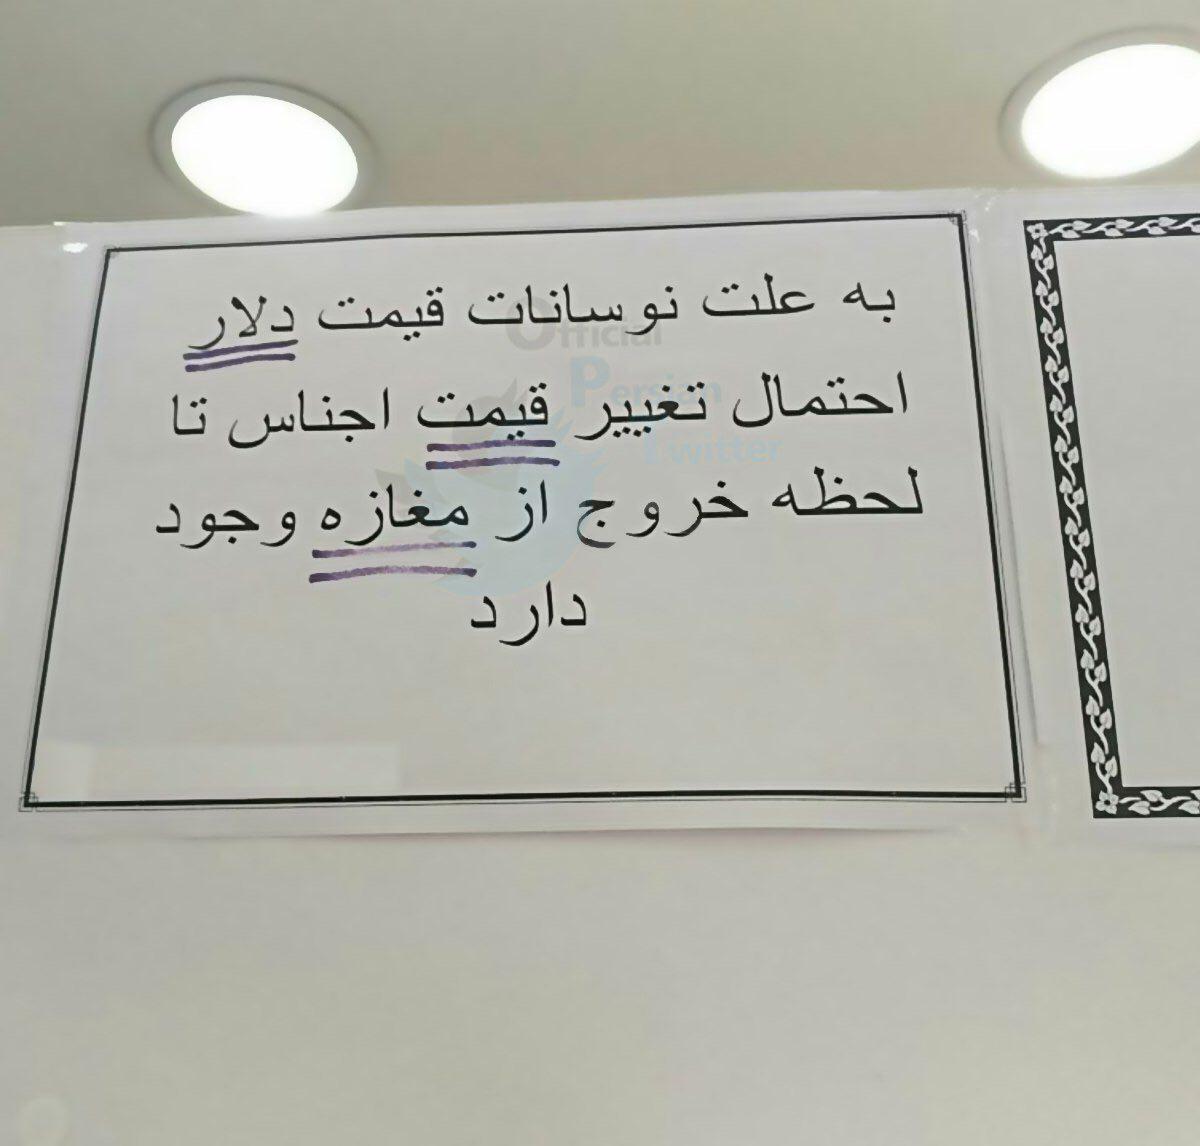 به علت نوسانات قیمت دلار
احتمال تغییر قیمت اجناس تا
لحظه خروج از مغازه وجود
دارد
Official
Persian
Twitter